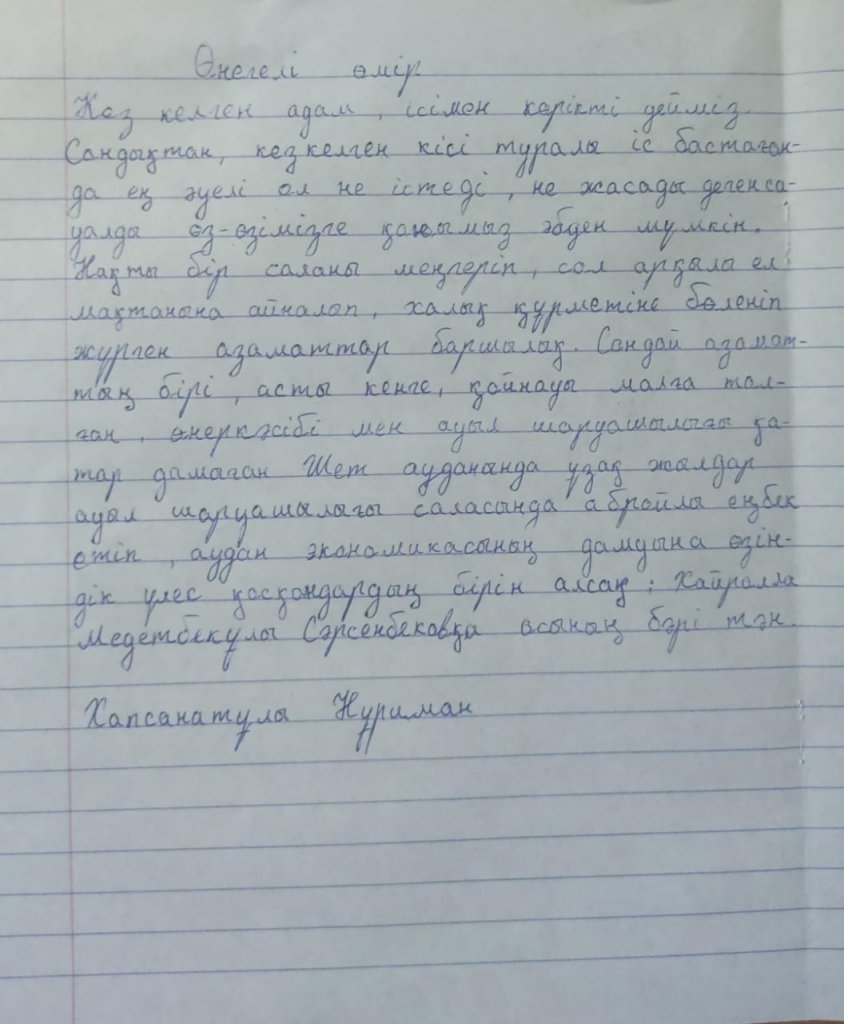 Өнегелі өмір
Кез келген адам, ісімен көрікті дейміз.
Сондықтан, кез келген кісі туралы іс бастаған-
да ең әуелі ол не істеді, не жасады деген са-
уалды өз-өзімізге қоюымыз әбден мүмкін.
Нақты бір саланы меңгеріп, сол арқылы ел
мақтанына айналап, халық құрметіне бөленіп
жүрген азаматтар баршылық. Сондай азамат-
тың бірі, асты кенге, қойнауы малға тол-
ған, өнеркәсібі мен ауыл шаруашылығы қа-
тар дамаған Шет ауданында ұзақ жылдар
ауыл шаруашылығы саласында абройлы еңбек
етіп, аудан экономикасының дамдына өзін-
дік үлес қосқондардың бірін алсақ; Хайролла
Медетбекұлы Сәрсенбековқа осының бәрі тән.
Хапсанатұлы Нұриман